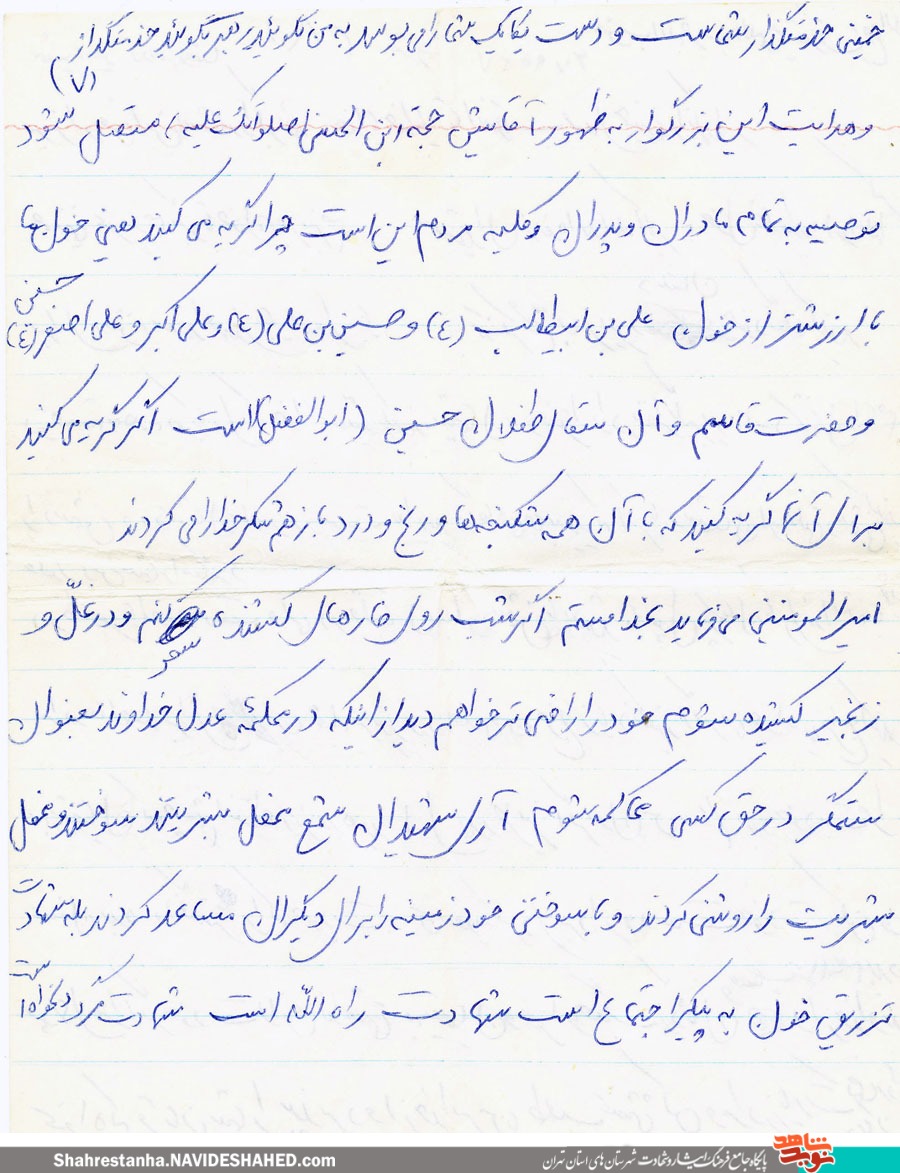 خمینی خدمتگذار شماست و دست یکایک شما را می بوسد به من نگوئید رهبر بگوئید خدمتگذار
(۷)
و هدایت این بزرگوار به ظهور آقاییش حجة ابن الحسن (صلواتک علیه) متصل شود
توصیه به تمام مادران و پدران و کلیه مردم این است چرا گریه می کنید یعنی خون ما
با ارزشتر از خون علی بن ابیطالب (ع) و حسین بن علی (ع) و علی اکبر و علی اصغر حسینی (ع)
و حضرت قاسم و آن سقای طفلان حسین (ابوالفضل) است اگر گریه می کنید
برای آنها گریه کنید که با آن همه شکنجه ها و رنج و درد باز هم شکر خدا را می کردند
امیرالمومنین می فرماید بخدا قسم اگر شب روی خارهای کشنده سفر کنم و در غلّ و
زنجیر کشیده شوم خود را راضی تر خواهم دید از اینکه در محکمۀ عدل خداوند بعنوان
ستمگر در حق کسی محاکمه شوم آری شهیدان شمع محفل بشریتند سوختند و محفل
بشریت را روشنی کردند و با سوختن خود زمینه را برای دیگران مساعد کردند بله شهادت
تزریق خون به پیکر اجتماع است شهادت راه الله است شهادت مرگ دلخواه است
Shahrestanha.NAVIDESHAHED.com
نوید شاهد
پایگاه جامع فرهنگ ایثار و شهادت شهرستان های استان تهران